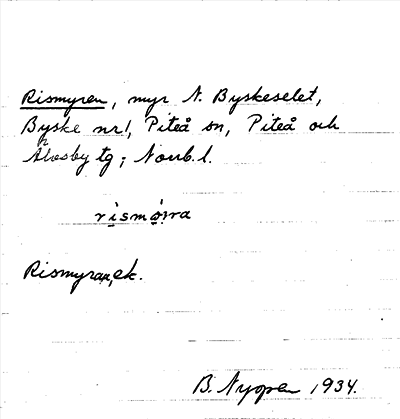 Rismyren, myr N. Byskeselet,
Byske nr 1, Piteå sn, Piteå och
Älvsby tg; Norrb. l.
rismøı̣ra
Rismyran, ek.
B. Nygren 1934.